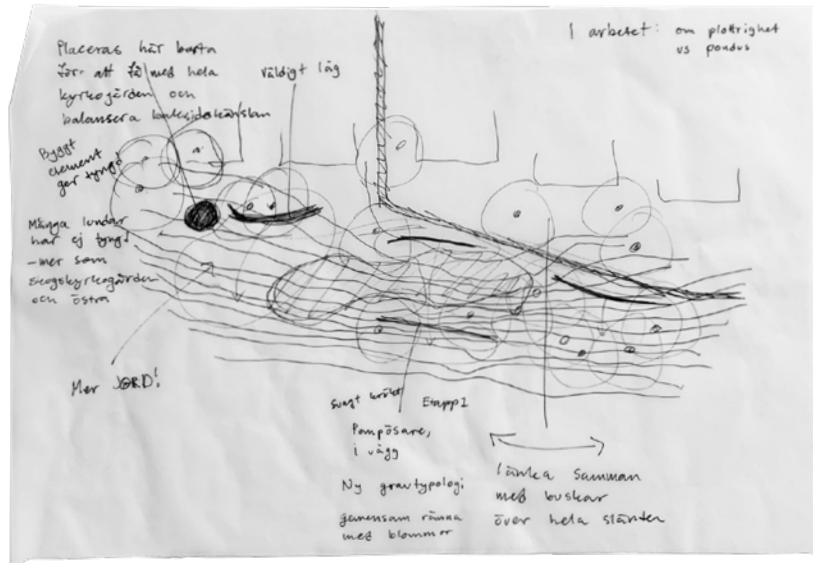 I arbetet: om plottrighet
vs pondus
Placeras här borta
för att få med hela
kyrkogården och
balansera baksidekänslan
väldigt låg
Byggt
element
ger tyngd
Många lundar
har ej tyngd
– mer som
skogskyrkogården
och östra
Mer JORD!
svagt krökt
Etapp 1
Pampösare,
i vägg
Ny gravtypologi
gemensam ränna
med blommor
länka samman
med buskar
över hela slänten